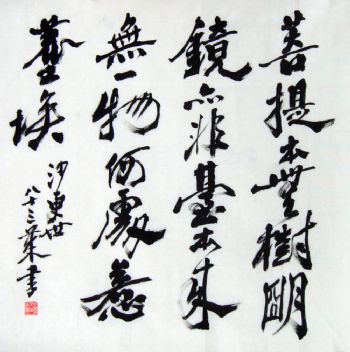 菩提本無樹明
鏡亦非臺本來
無一物何處惹
塵埃
沙更世
八十三歲書